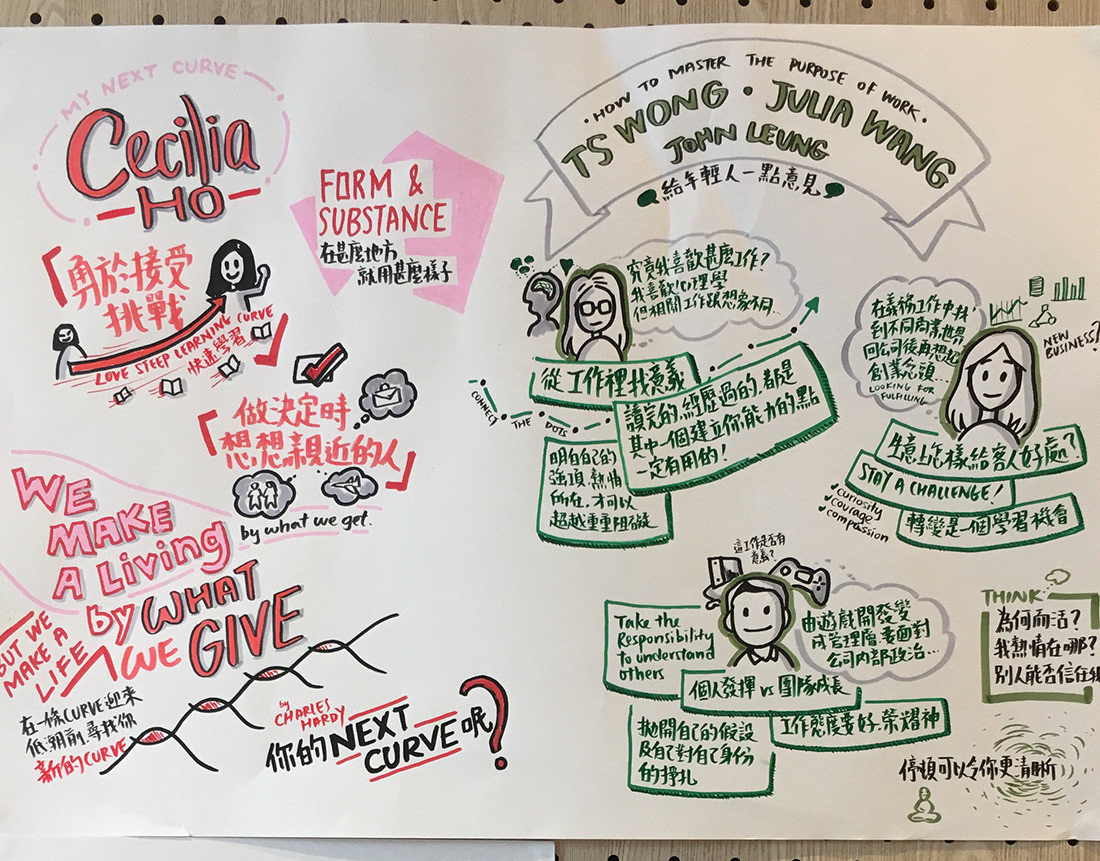 MY NEXT CURVE
Cecilia
HO
「勇於接受
挑戰」
LOVE STEEP LEARNING CURVE
快速學習
FORM &
SUBSTANCE
在甚麼地方
就用甚麼樣子
「做決定時
想想親近的人」
WE
MAKE
A Living
by what we get.
BUT WE
MAKE A
LIFE
by WHAT
WE GIVE
在一條CURVE迎來
低潮前尋找你
新的CURVE
by
CHARLES
HARDY
你的NEXT
CURVE呢?
HOW TO MASTER THE PURPOSE OF WORK
TS WONG · JULIA WANG
JOHN LEUNG
給年輕人一點意見
究竟我喜歡甚麼工作?
我喜歡心理學
但相關工作跟想象不同...
從工作裡找意義
CONNECT THE DOTS
讀完的,經歷過的,都是
其中一個建立你能力的點
一定有用的!
明白自己的
強項,熱情
所在,才可以
超越重重阻礙
在義務工作中找
到不同商業世界
回公司後再想起
創業念頭...
LOOKING FOR
FULFILLING
NEW
BUSINESS?
生意上怎樣給客人好處?
STAY A CHALLENGE!
curiosity
courage
compassion
轉變是一個學習機會
這工作是否有
意義?
由遊戲開發變
成管理層,要面對
公司內部政治...
Take the
Responsibility
to understand
others
個人發揮 vs 團隊成長
拋開自己的假設
及自己對自己身份
的掙扎
工作態度要好,榮耀神
THINK
為何而活?
我熱情在哪?
別人能否信任
停頓可以令你更清晰